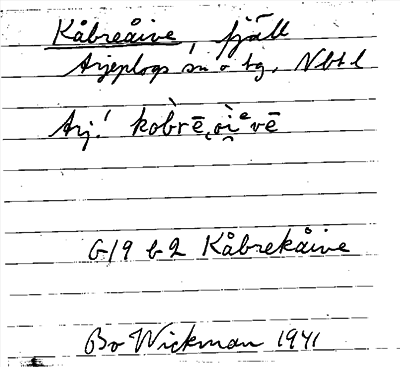 Kåbreåive, fjäll
Arjeplogs sn o tg, Nbtl
Arj! kòbrē̮òi̯ᵉvē
G 19 b 2 Kåbrekåive
Bo Wickman 1941